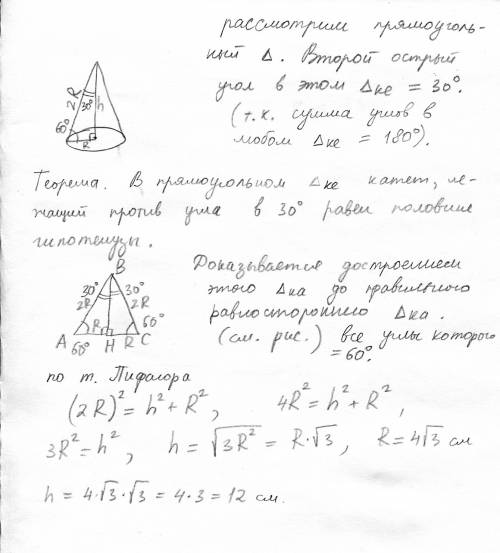 рассмотрим прямоуголь-
ный Δ. Второй острый
угол в этом Δке = 30°.
(т.к. сумма углов в
любом Δке = 180°).
2R
30°
h
60°
R
Теорема. В прямоугольном Δке катет, ле-
жащий против угла в 30° равен половине
гипотенузы.
B
30° 30°
2R 2R
R
60° 60°
A H R C
Доказывается достроением
этого Δка до правильного
равностороннего Δка.
(см. рис.) все углы которого
=60°.
по т. Пифагора
(2R)² = h² + R², 4R² = h² + R²,
3R² = h², h = √3R² = R·√3, R = 4√3 см
h = 4·√3·√3 = 4·3 = 12 см.